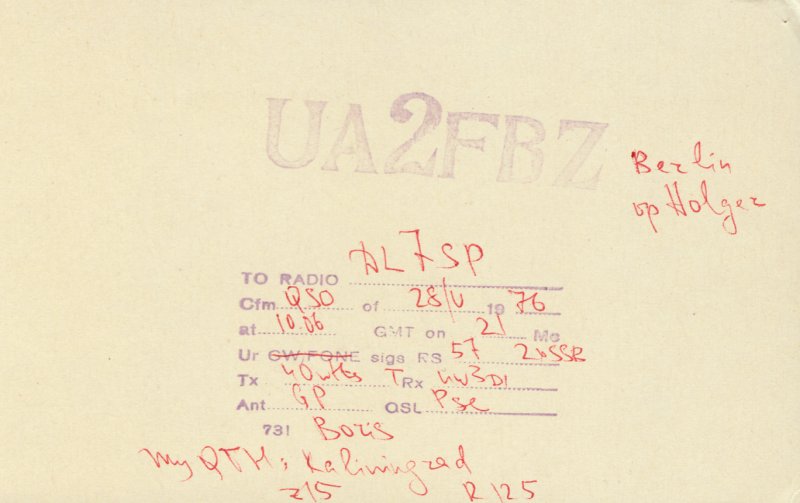 UA2FBZ
Berlin
op Holger
TO RADIO DL7SP
Cfm QSO of 28/V 1976
at 10.06 GMT on 21 Mc
Ur CW,FONE sigs RS 57 2xSSB
Tx 40 wtts TRx UW3DI
Ant GP QSL Pse
73! Boris
My QTH: Kaliningrad
z/5 R 125